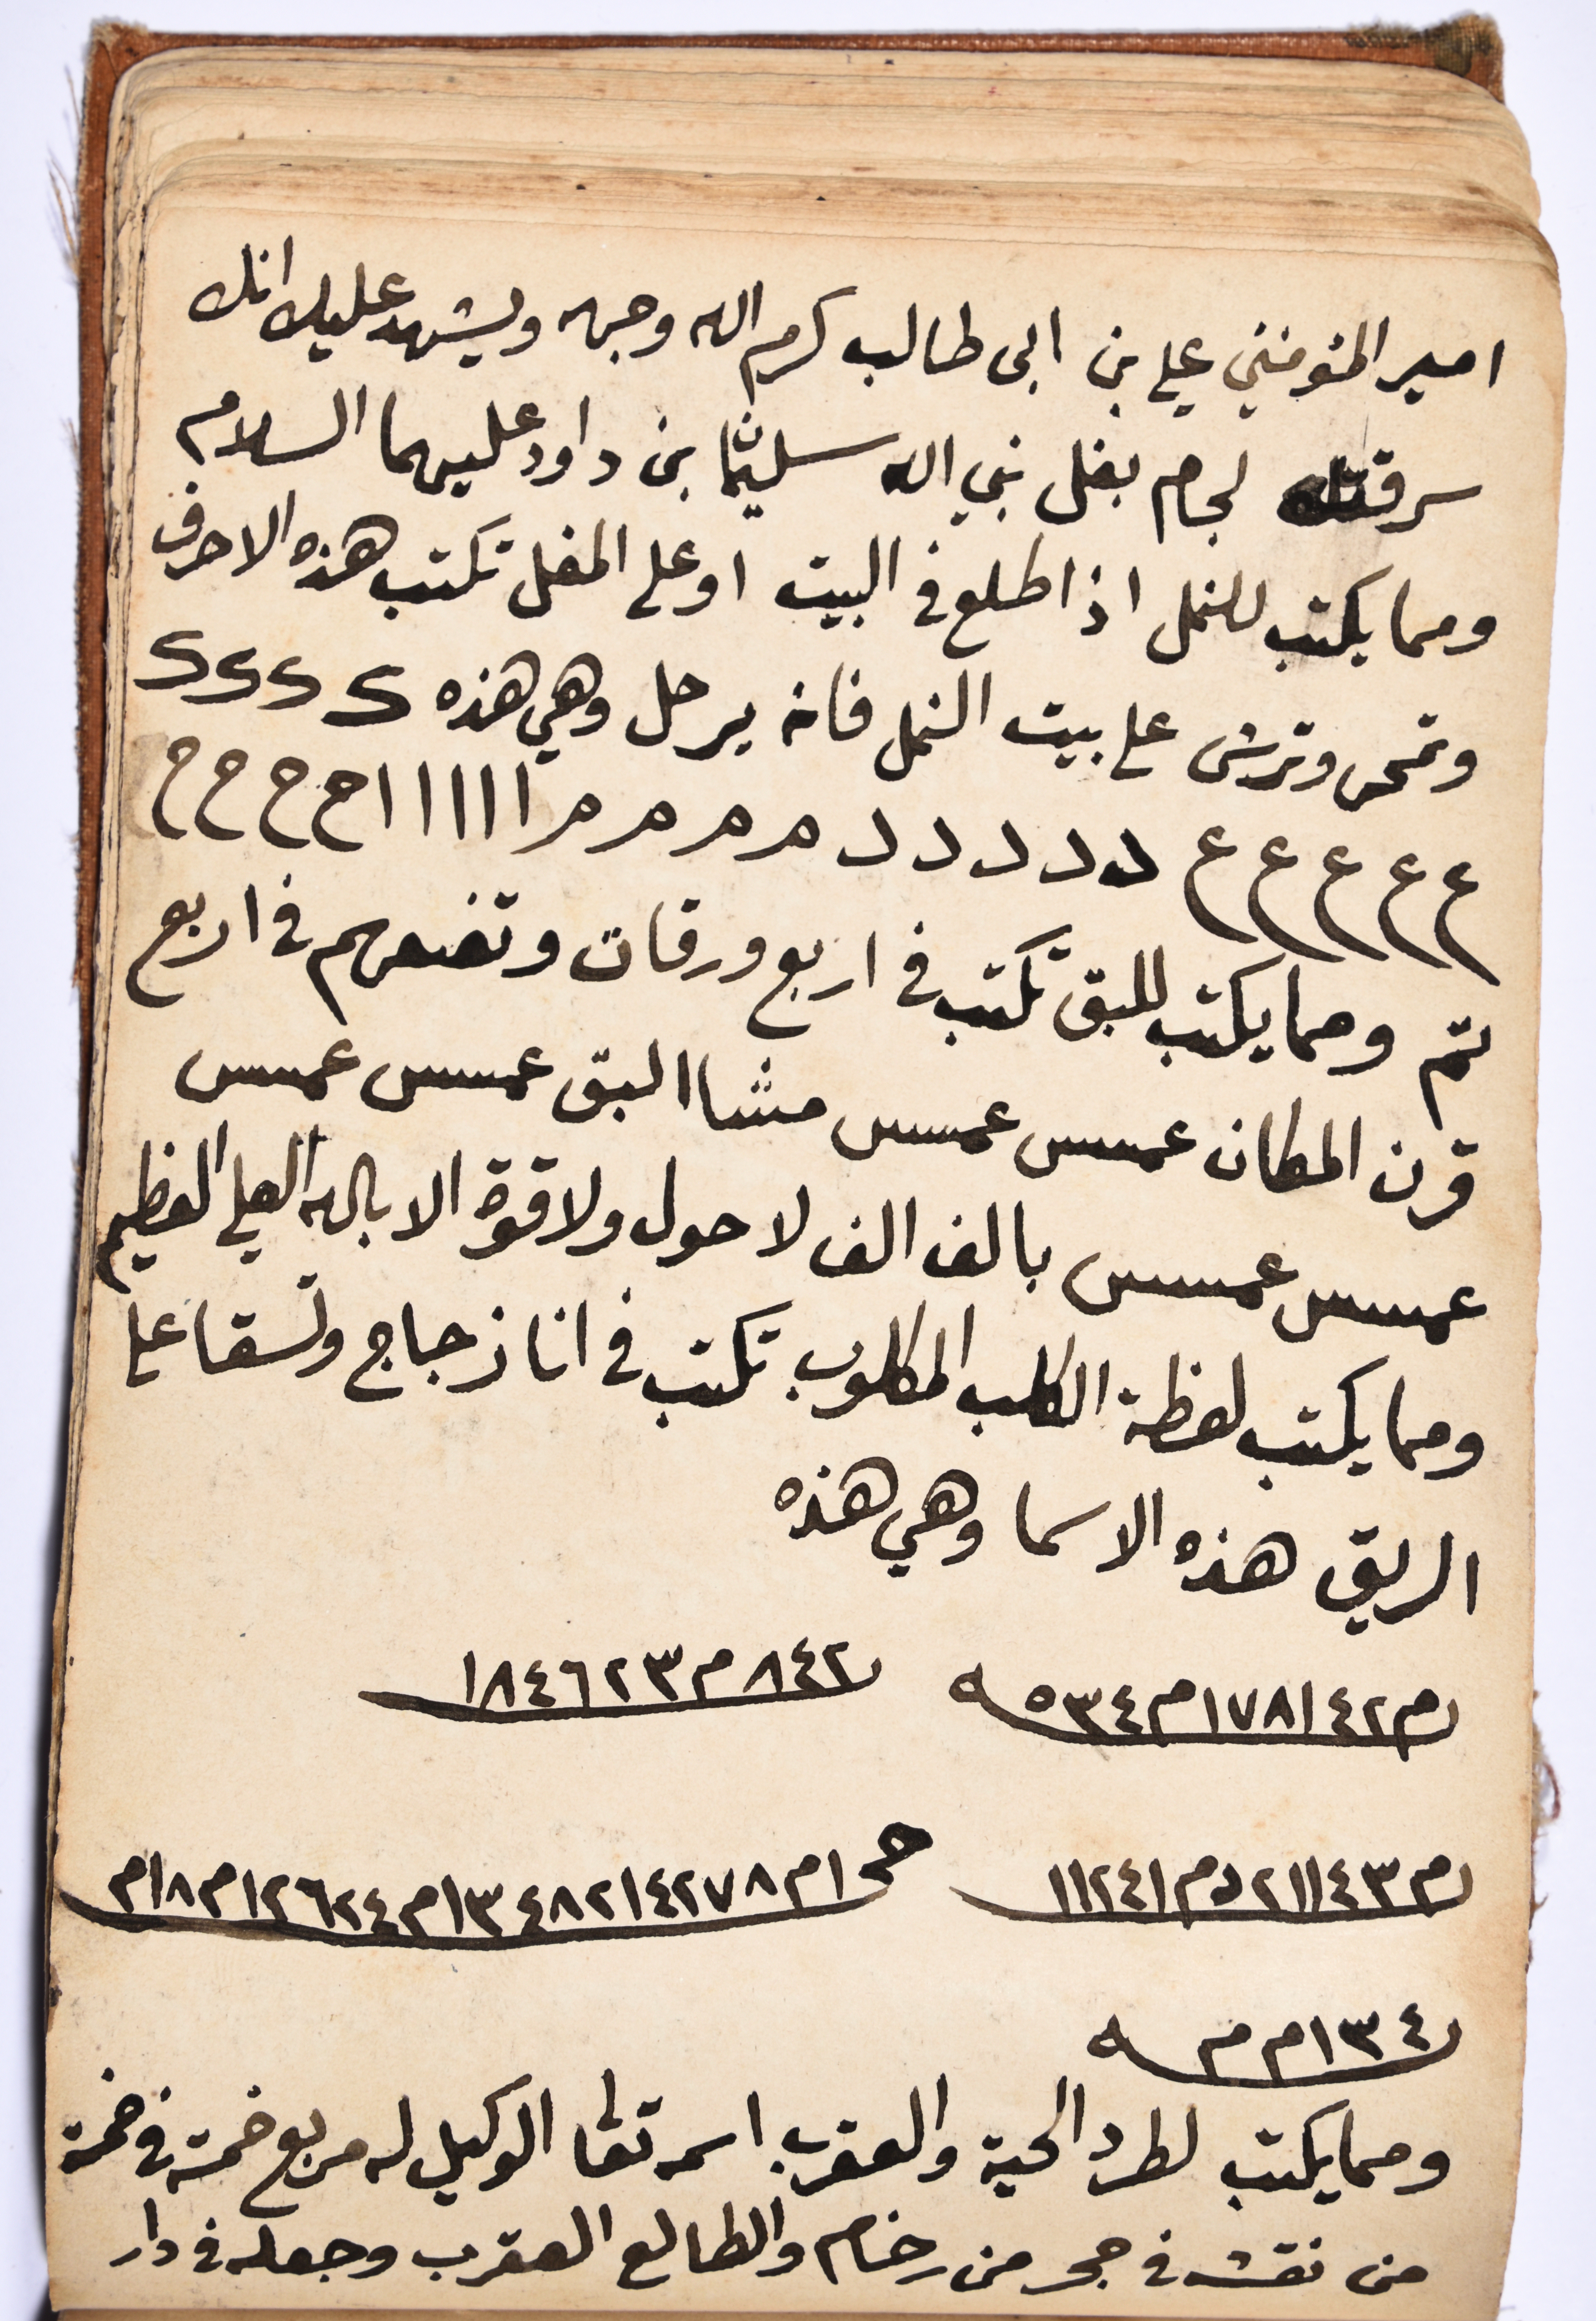 امير المؤمنين علي بن ابى طالب كرم الله وجهه ويشهد عليك انك
سرقت لجام بغل نبي الله سليمان بن داود عليهما السلام
ومما يكتب للنمل اذا طلع فى البيت او على المغل تكتب هذه الاحرف
وتمحى وترش على بيت النمل فانه يرحل وهي هذه ک ک ک ک
ع ع ع ع ع د د د د د م م م م ا ا ا ا ا ا ح ح ح ح
تم ومما يكتب للبق تكتب فى اربع ورقات وتضعهم فى اربع
قرن المكان عمسس عمسس مشا البق عمسس عمسس
عمسس عمسس بالف الف لا حول ولا قوة الا بالله العلي العظيم
ومما يكتب لعظة الكلب المكلوب تكتب فى انا زجاج وتسقا على
الريق هذه الاسما وهي هذه
م١٧٨١٤٢م٥٣٤ه ٨٤٢م١٨٤٦٢٣
م٢١١٤٣دم١١٢٤١ ح١م٣٤٨٢١٤٢٧٨ام١٢٦٢٤م٨ام
١٣٤م م ه
ومما يكتب لطرد الحية والعقرب اسمه تعالى الوكيل له مربع خمسة فى خمسة
من نقشه فى حجر من رخام والطالع العقرب وجعله فى دار